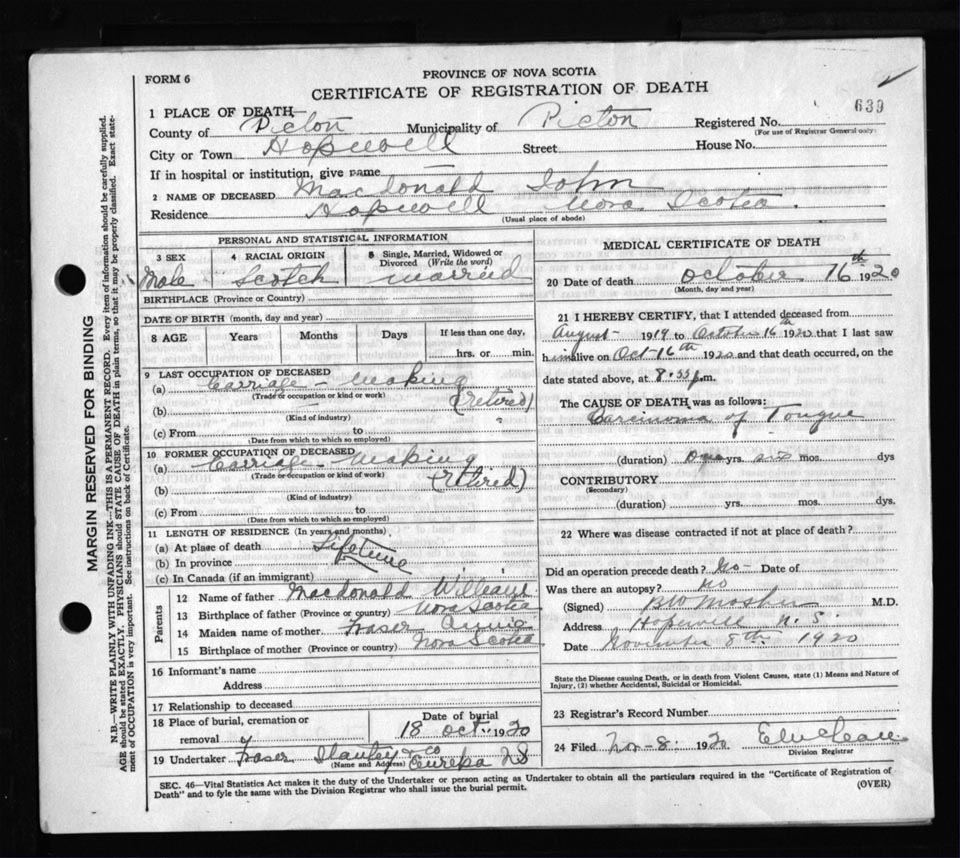 PROVINCE OF NOVA SCOTIA
FORM 6
CERTIFICATE OF REGISTRATION OF DEATH
639
1 PLACE OF DEATH
County of Picton Municipality of Picton Registered No.
(For use of Registrar General only)
City or Town Hopewell Street House No.
If in hospital or institution, give name
2 NAME OF DECEASED MacDonald John
Residence Hopewell Nova Scotia
(Usual place of abode)
PERSONAL AND STATISTICAL INFORMATION
3 SEX 4 RACIAL ORIGIN 5 Single, Married, Widowed or Divorced (Write the word)
Male Scotch married
BIRTHPLACE (Province or Country)
DATE OF BIRTH (month, day and year)
8 AGE Years Months Days If less than one day,
hrs. or min.
9 LAST OCCUPATION OF DECEASED
(a) Carriage - Making
(Trade or occupation or kind or work) (retired)
(b)
(Kind of industry)
(c) From to
(Date from which to which so employed)
10 FORMER OCCUPATION OF DECEASED
(a) Carriage - Making
(Trade or occupation or kind or work)
(b) (retired)
(Kind of industry)
(c) From to
(Date from which to which so employed)
11 LENGTH OF RESIDENCE (In years and months)
(a) At place of death Lifetime
(b) In province
(c) In Canada (if an immigrant)
Parents
12 Name of father Macdonald William
13 Birthplace of father (Province or country) Nova Scotia
14 Maiden name of mother Fraser Annie
15 Birthplace of mother (Province or country) Nova Scotia
16 Informant's name
Address
17 Relationship to deceased
18 Place of burial, cremation or removal Date of burial
18 Oct. 1920
19 Undertaker Fraser Stanley & Co Eureka NS
(Name and Address)
MEDICAL CERTIFICATE OF DEATH
20 Date of death October 16th 1920
(Month, day and year)
21 I HEREBY CERTIFY, that I attended deceased from
August 1919 to October 16th 1920 that I last saw
him alive on Oct-16th 1920 and that death occurred, on the
date stated above, at 8.35 p.m.
The CAUSE OF DEATH was as follows:
Carcinoma of Tongue
(duration) One yrs. six mos. dys
CONTRIBUTORY
(Secondary)
(duration) yrs. mos. dys.
22 Where was disease contracted if not at place of death?
Did an operation precede death? No - Date of
Was there an autopsy? No
(Signed) M.D.
Address Hopewell N.S.
Date November 8th 1920
State the Disease causing Death, or in death from Violent Causes, state (1) Means and Nature of
Injury, (2) whether Accidental, Suicidal or Homicidal.
23 Registrar's Record Number
24 Filed Nov-8. 1920
Division Registrar
SEC. 46—Vital Statistics Act makes it the duty of the Undertaker or person acting as Undertaker to obtain all the particulars required in the "Certificate of Registration of
Death" and to fyle the same with the Division Registrar who shall issue the burial permit. (OVER)
MARGIN RESERVED FOR BINDING
N.B.—WRITE PLAINLY WITH UNFADING INK—THIS IS A PERMANENT RECORD. Every item of information should be carefully supplied.
AGE should be stated EXACTLY. PHYSICIANS should STATE CAUSE OF DEATH in plain terms, so that it may be properly classified. Exact state-
ment of OCCUPATION is very important. See instructions on back of Certificate.